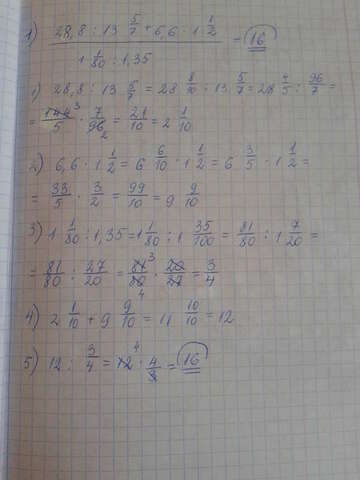 1) 28,8 : 13 5/7 + 6,6 · 1 1/2
1 1/80 : 1,35 = 16
1) 28,8 : 13 5/7 = 28 8/10 : 13 5/7 = 28 4/5 : 96/7 =
= 144 3/5 · 7/96 2 = 21/10 = 2 1/10
2) 6,6 · 1 1/2 = 6 6/10 · 1 1/2 = 6 3/5 · 1 1/2 =
= 33/5 · 3/2 = 99/10 = 9 9/10
3) 1 1/80 : 1,35 = 1 1/80 : 1 35/100 = 81/80 : 1 7/20 =
= 81/80 : 27/20 = 81 3/80 4 · 20/27 = 3/4
4) 2 1/10 + 9 9/10 = 11 10/10 = 12
5) 12 : 3/4 = 12 4 · 4/3 = 16